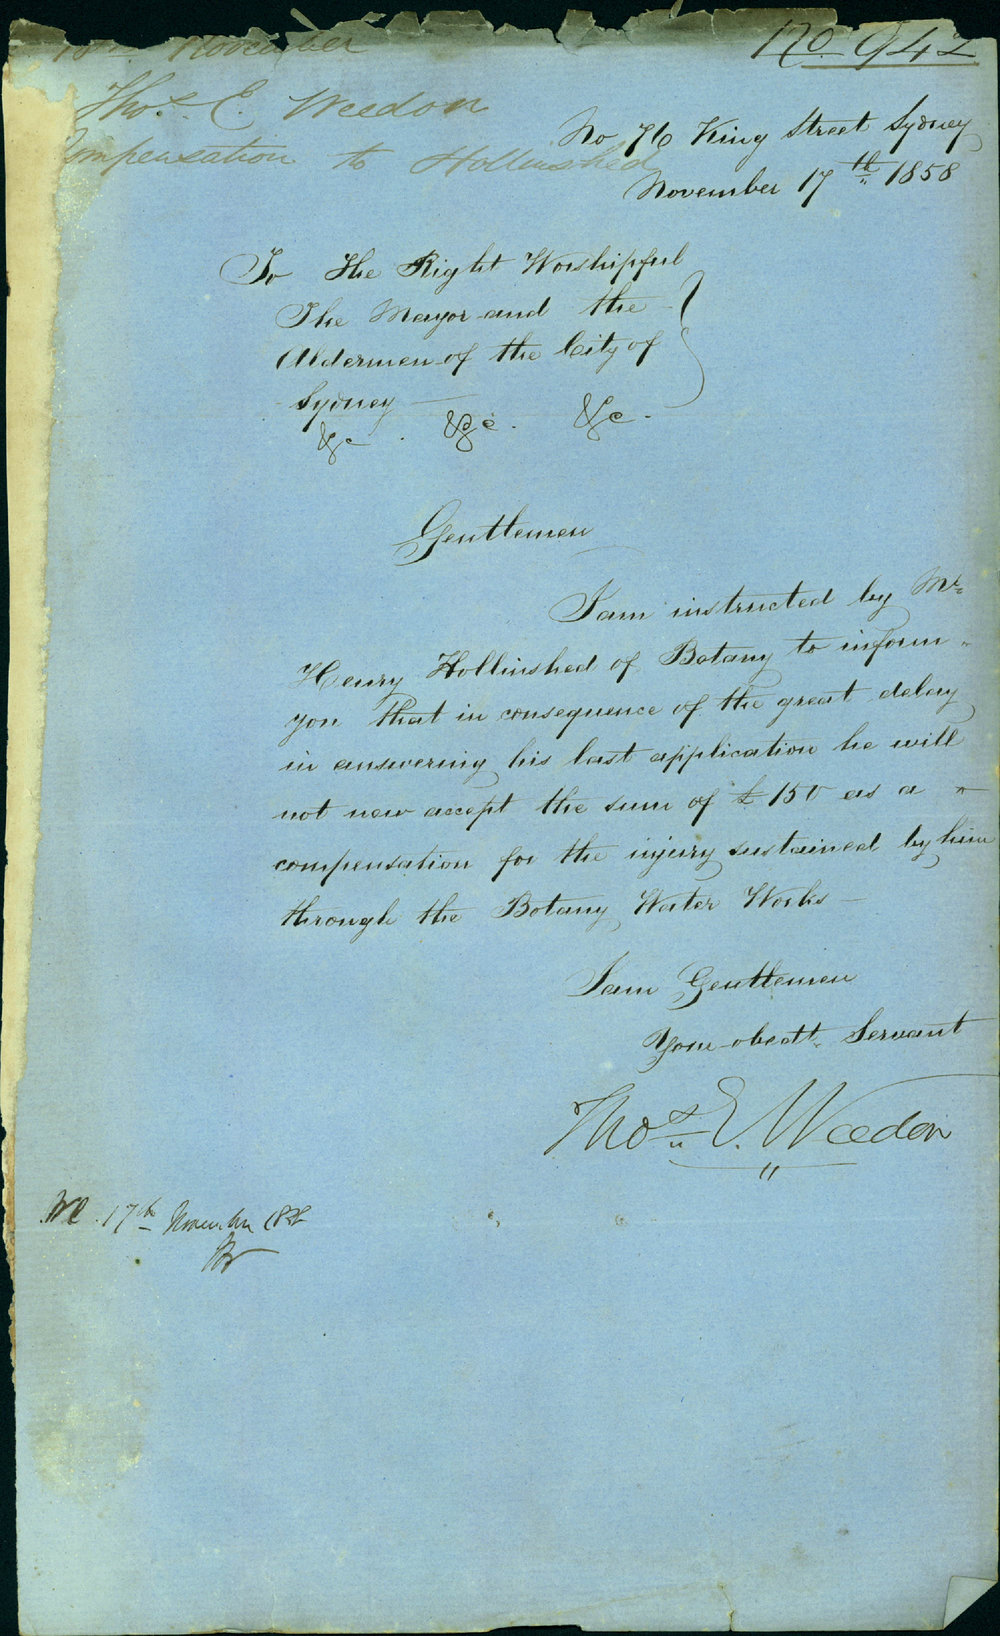 November
No 942
Thos. E. Weedon
Compensation to Hollinshed
No 76 King Street Sydney
November 17th 1858
To The Right Worshipful
The Mayor and the
Aldermen of the City of
Sydney
&c. &c. &c.
Gentlemen
I am instructed by Mr
Henry Hollinshed of Botany to inform
you that in consequence of the great delay
in answering his last application he will
not now accept the sum of £150 as a
compensation for the injury sustained by him
through the Botany Water Works
I am Gentlemen
Your obedtt. Servant
Thos. E. Weedon
17th November 1858